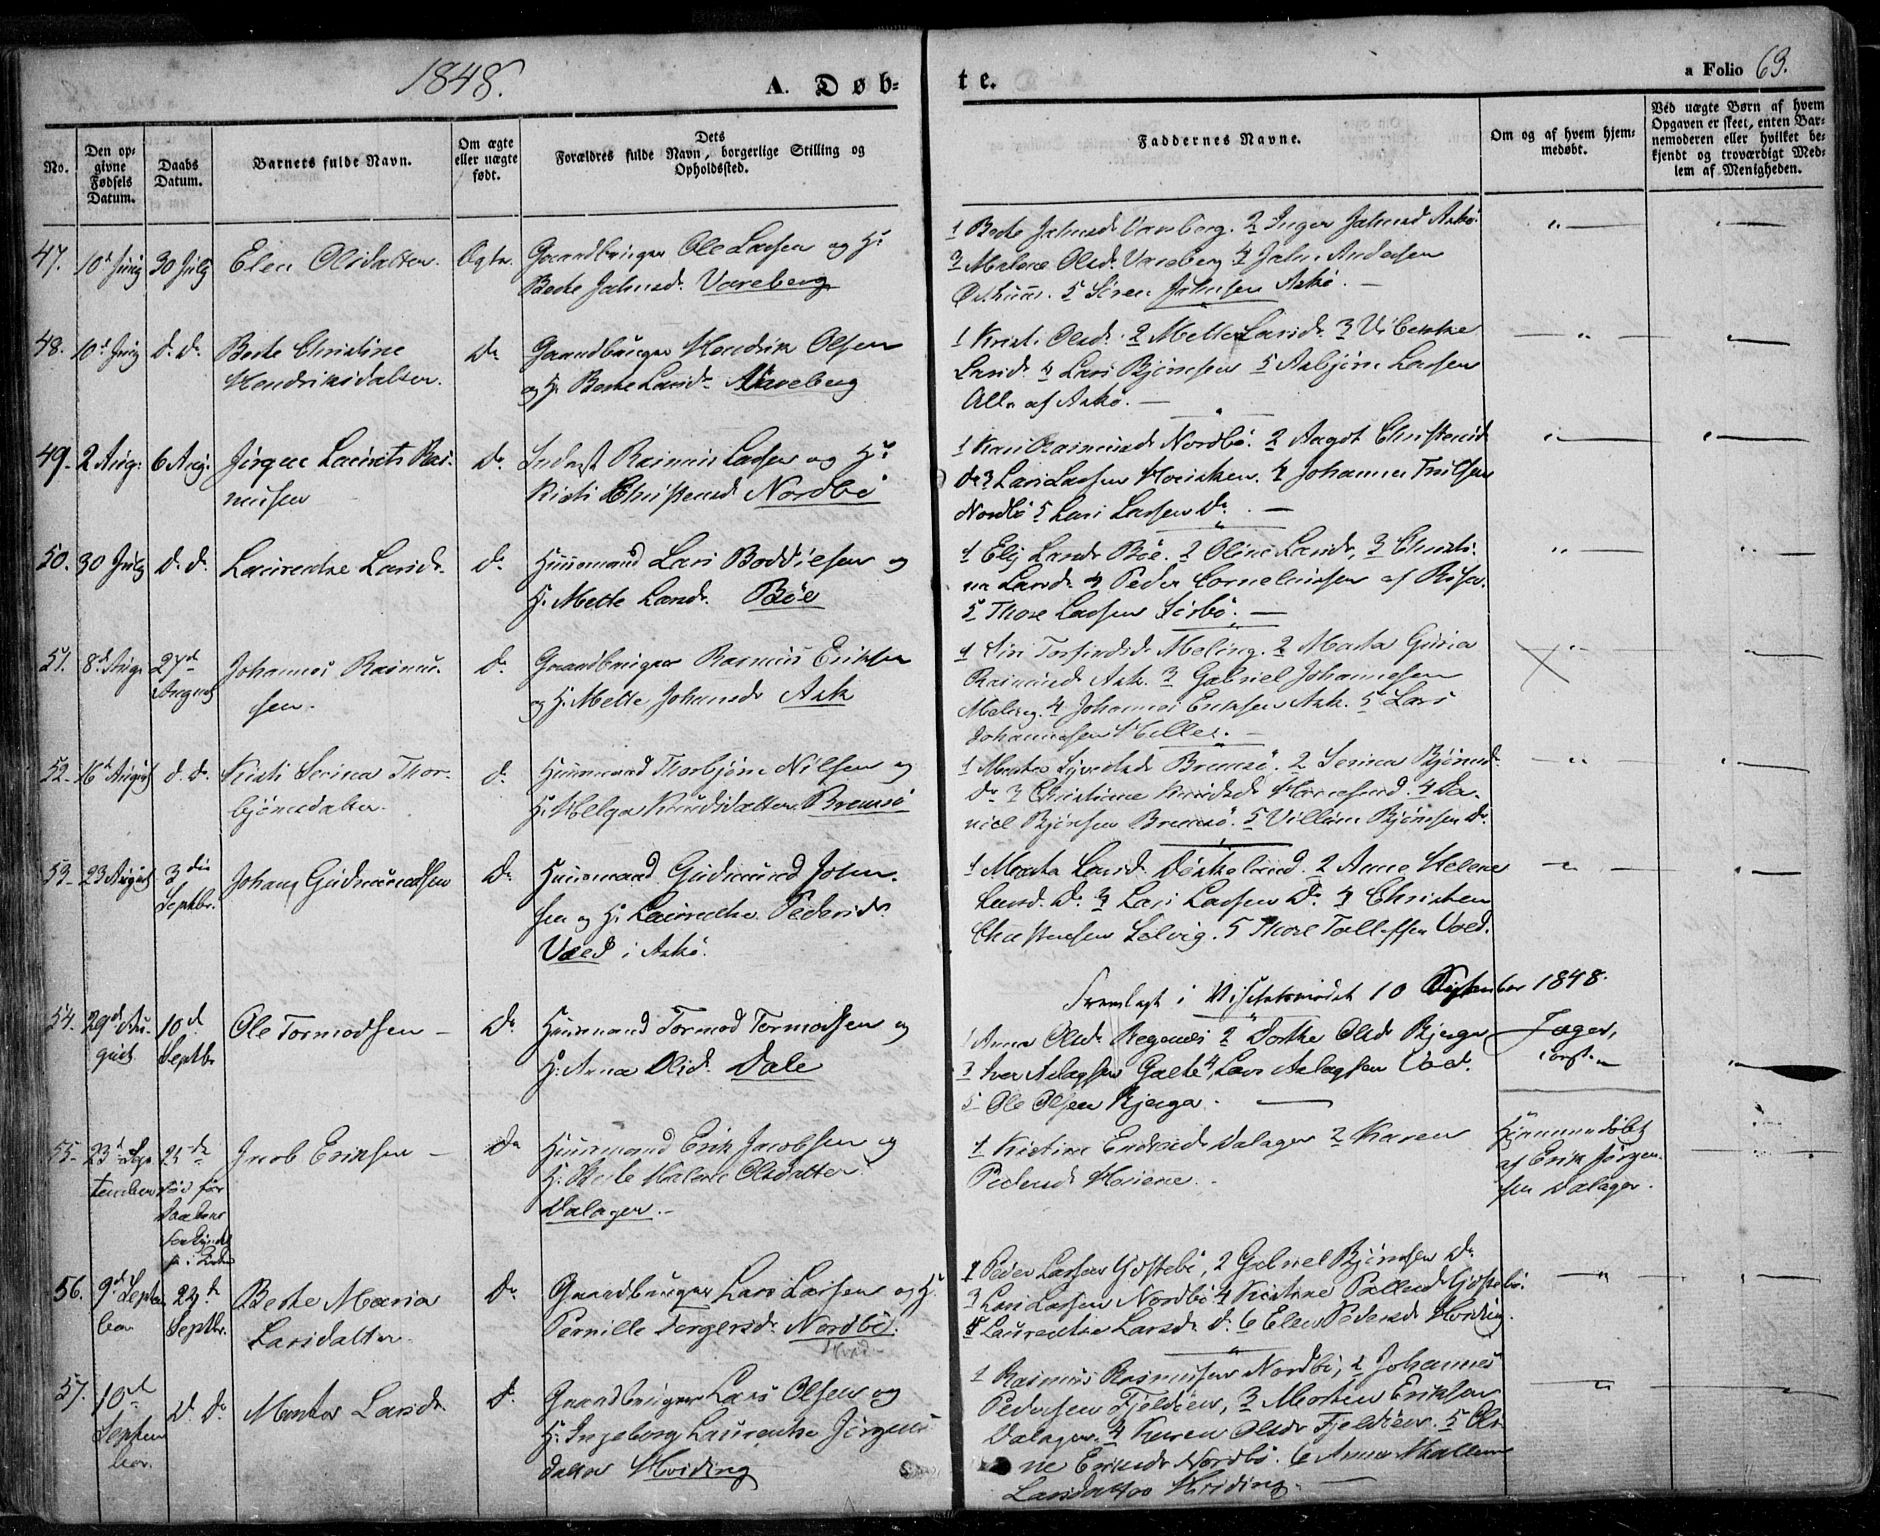 1848.
A. Døb-
te.
a Folio 63.
No.
Den op-
givne
Fødsels
Datum.
Daabs
Datum.
Barnets fulde Navn.
Om ægte
eller uægte
født.
Dets
Forældres fulde Navn, borgerlige Stilling og
Opholdssted.
Faddernes Navne.
Om og af hvem hjem-
medøbt.
Ved uægte Børn af hvem
Opgaven er skeet, enten Bar-
nemoderen eller hvilket be-
kjendt og troværdigt Med-
lem af Menigheden.
47. 10d Juny 30 July Elen Olsdatter Ægte. Gaardbruger Ole Larsen og H:
Berte Jahnsd. Vareberg
1 Berte Jahnsd. Vareberg. 2 Inger Jahnsd Askø.
3 Malene Olsd. Vareberg 4 Jahn Andersen
5 Sören Jahnsen Askø. —
48. 10d July d. Do Berte Christine
Hendriksdatter.
Do Gaardbruger Hendrik Olsen
og H. Berte Larsd. Vareberg
1 Kristi Olsd. 2 Mette Larsd. 3 Vibekke
Larsd. 4 Lars Bjørnsen 5 Asbjörn Larsen
Alle af Askø. —
49. 2 Aug: 6 Aug: Jörgen Laurits Ras-
musen
Do Inderst Rasmus Larsen og H:
Kisti Christensd Nordbö
1 Kari Rasmusd Nordbö. 2 Aagot Christensd
Do 3 Lars Larsen 4 Johannes Truelsen
Nordbö 5 Lars Larsen Do. —
50. 30 July d. d. Laurentse Larsd.
d. Huusmand Lars Boddielsen og
H. Mette Larsd. Böe
1 Elij Larsd. Böe. 2 Oline Larsd. 3 Christi-
na Larsd. 4 Peder Corneliussen af
5 Thore Larsen Sörbö. —
51. 8d Aug. 27d
August
Johannes Rasmu-
sen.
d. Gaardbruger Rasmus Eriksen
og H. Mette Johansd. Ask
1 Siri Torfindsd. Meling. 2 Marta Guria
Rasmusd Ask. 3 Gabriel Johannesen
Meling. 4 Johannes Eriksen Ask. 5 Lars
Johannesen Helle. —
52. 16d August d. Do. Kisti Serina Thor-
björnsdatter.
d. Huusmand Thorbjörn Nilsen og
H. Helga Knudsdatter Bremsö
1 Marta Bremsö. 2 Serina Bjørnsd.
Do 3 Christiane Knudsd. 4 Da-
niel Bjørnsen Bremsö. 5 Villum Bjørnsen Do.
53. 23 August 3die
Septbr.
Johan Gudmundsen
Do Huusmand Gudmund John-
sen og H. Laurentse Pedersd.
Voed i Askø.
1 Marta Larsd. 2 Anne Helene
Larsd. Do. 3 Lars Larsen Do. 4 Christen
Christensen Solvig. 5 Thore Tollefsen Voed.
Fremlagt i Visitatsmødet 10 September 1848.
54. 29d Au-
gust
10d
Septbr
Ole Tormodsen —
Do Huusmand Tormod Tormodsen og
H. Anna Olsd. Dale
1 Anna Olsd. 2 Dorthe Olsd Bjerga
3 Iver Aslagsen 4 Lars Aslagsen Voed.
5 Ole Olsen Bjerga. —
55. 23d Sep-
tember
Död för
Jacob Eriksen —
Do Huusmand Erik Jacobsen og
H. Berte Malene Olsdatter
Dalager. —
1 Kistine Dalager 2 Karen
Pedersd
Hjemmedøbt
af Erik Jörgen-
sen Dalager.
56. 9d Septem-
ber
24d
Septbr.
Berte Maria
Larsdatter
Do Gaardbruger Lars Larsen og H.
Pernille Torgersd. Nordbö.
1 Peder Larsen 2 Gabriel Bjørnsen Do.
3 Lars Larsen Nordbö 4 Kistine
5 Laurentse Larsd. d. 6 Elen Pedersd
57. 10d
Septem-
ber.
d. Do Marta Larsd.
d. Gaardbruger Lars Olsen og
H. Ingeborg Laurentse Jörgens-
datter Hviding
1 Rasmus Rasmusen Nordbö, 2 Johannes
Pedersen Fjeldöen, 3 Morten Eriksen
Dalager. 4 Karen Olsdr Fjeldöen. 5 Oli-
ne Eriksdr Nordbö. 6 Anne Malene
Larsdatter Hviding. —